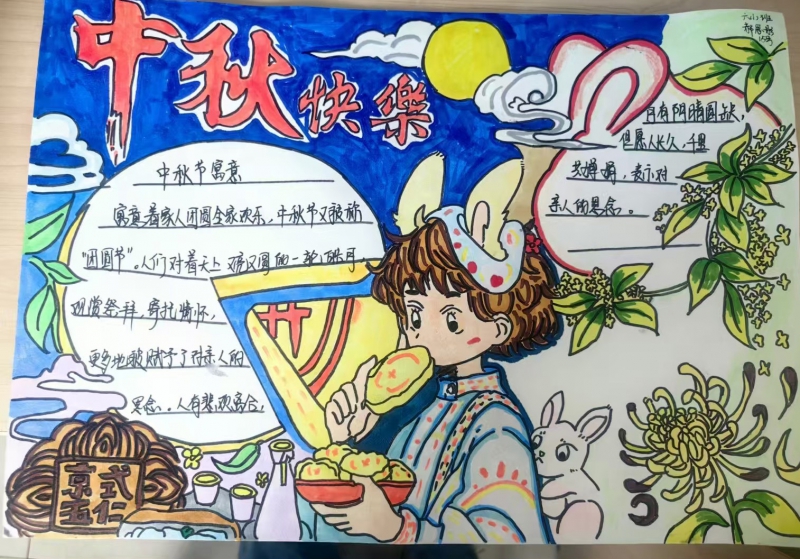 中秋
快樂
中秋节寓意
寓意着家人团圆全家欢乐,中秋节又被称
"团圆节"。人们对着天上 又圆的一轮皓月,
观赏祭拜,寄托情怀,
更多地被赋予了对亲人的
思念。人有悲欢离合,
月有阴晴圆缺,
但愿人长久,千里
共婵娟,表示对
亲人的思念。
京式
五仁